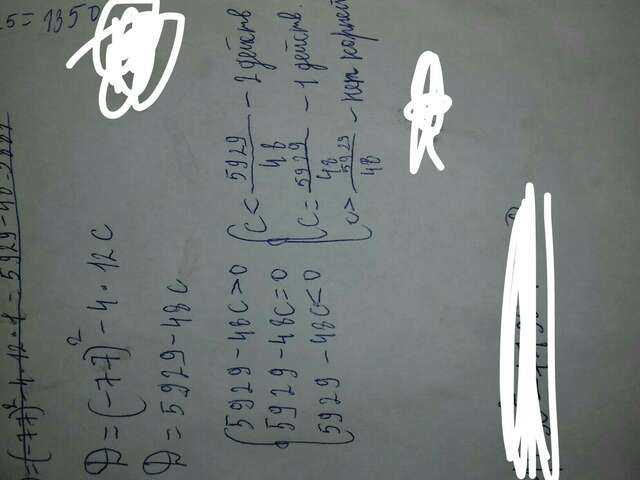 5 = 1350
= (-77)² - 4 · 12 ·
D = (-77)² - 4 · 12 C
D = 5929 - 48C
5929 - 48C > 0
5929 - 48C = 0
5929 - 48C < 0
C < 5929/48 - 2 действ
C = 5929/48 - 1 действ.
C > 5929/48 - нет корней